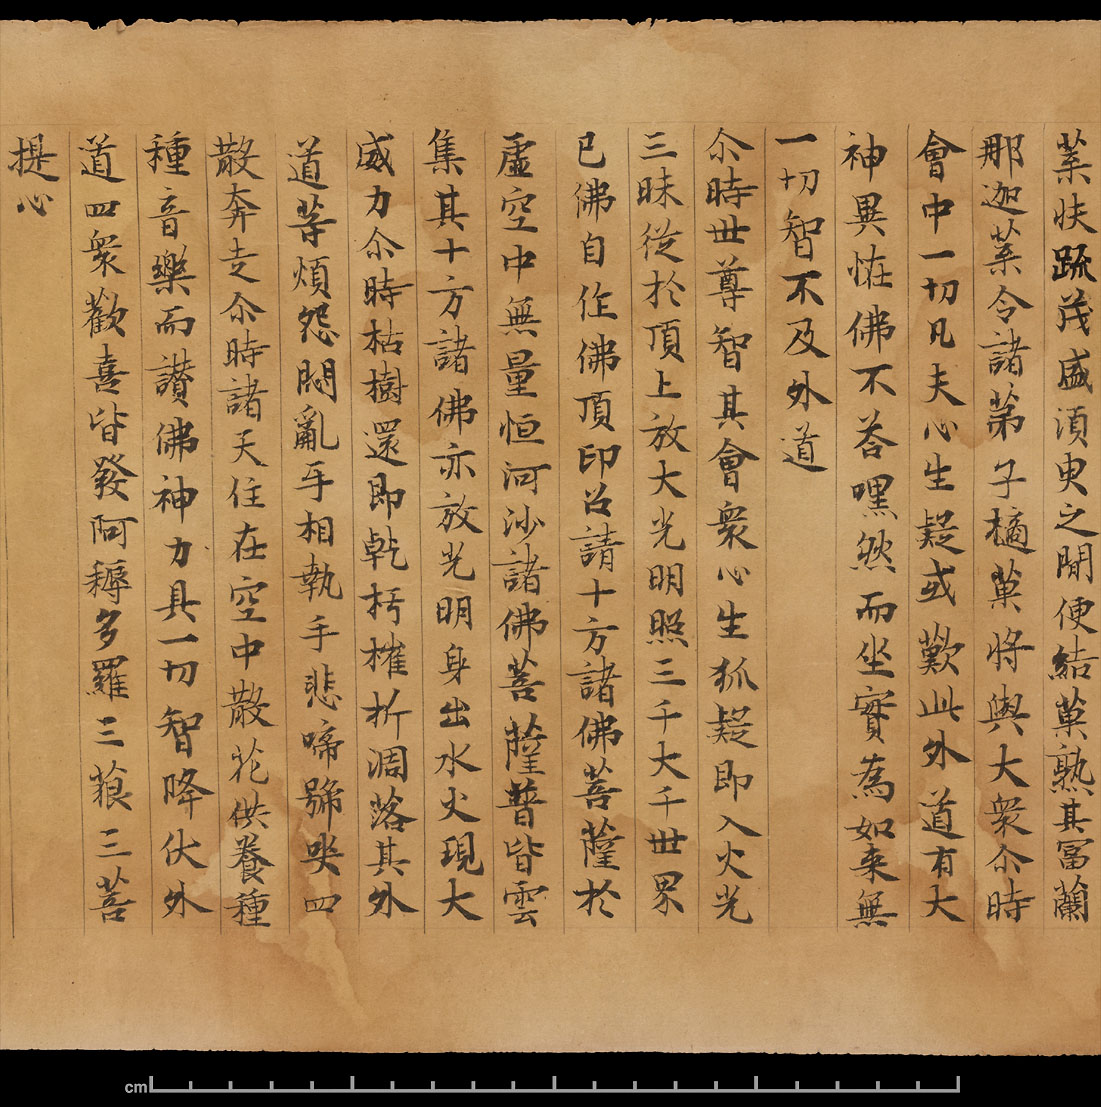 葉扶踈茂盛須臾之間便結菓熟其冨蘭
那迦葉令諸苐子擿菓将與大衆尒時
會中一切凡夫心生疑或歎此外道有大
神異恠佛不荅嘿然而坐實為如来無
一切智不及外道
尒時世尊智其會衆心生狐疑即入火光
三昧従於頂上放大光明照三千大千世界
已佛自作佛頂印召請十方諸佛菩薩於
虛空中無量恒河沙諸佛菩薩普皆雲
集其十方諸佛亦放光明身出水火現大
威力尒時枯樹還即乹朽摧折凋落其外
道等煩怨悶亂手相執手悲啼號哭四
散奔走尒時諸天住在空中散花供養種
種音樂而讃佛神力具一切智降伏外
道四衆歡喜皆發阿耨多羅三藐三菩
提心
cm